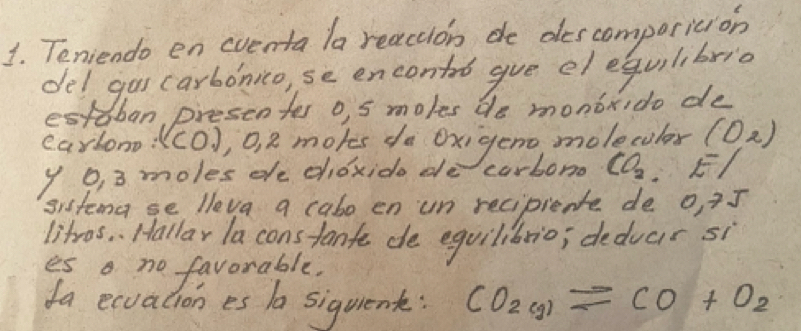 1. Teniendo en cuenta la reacción de descomposición
del gas carbónico, se encontró que el equilibrio
estaban presentes 0,5 moles de monóxido de
carbono (CO), 0,2 moles de oxigeno molecular (O2)
y 0,3 moles de dióxido de carbono CO2. El
sistema se lleva a cabo en un recipiente de 0,75
litros.. Hallar la constante de equilibrio; deducir si
es o no favorable.
La ecuación es la siguiente: CO2(g) ⇌ CO + O2